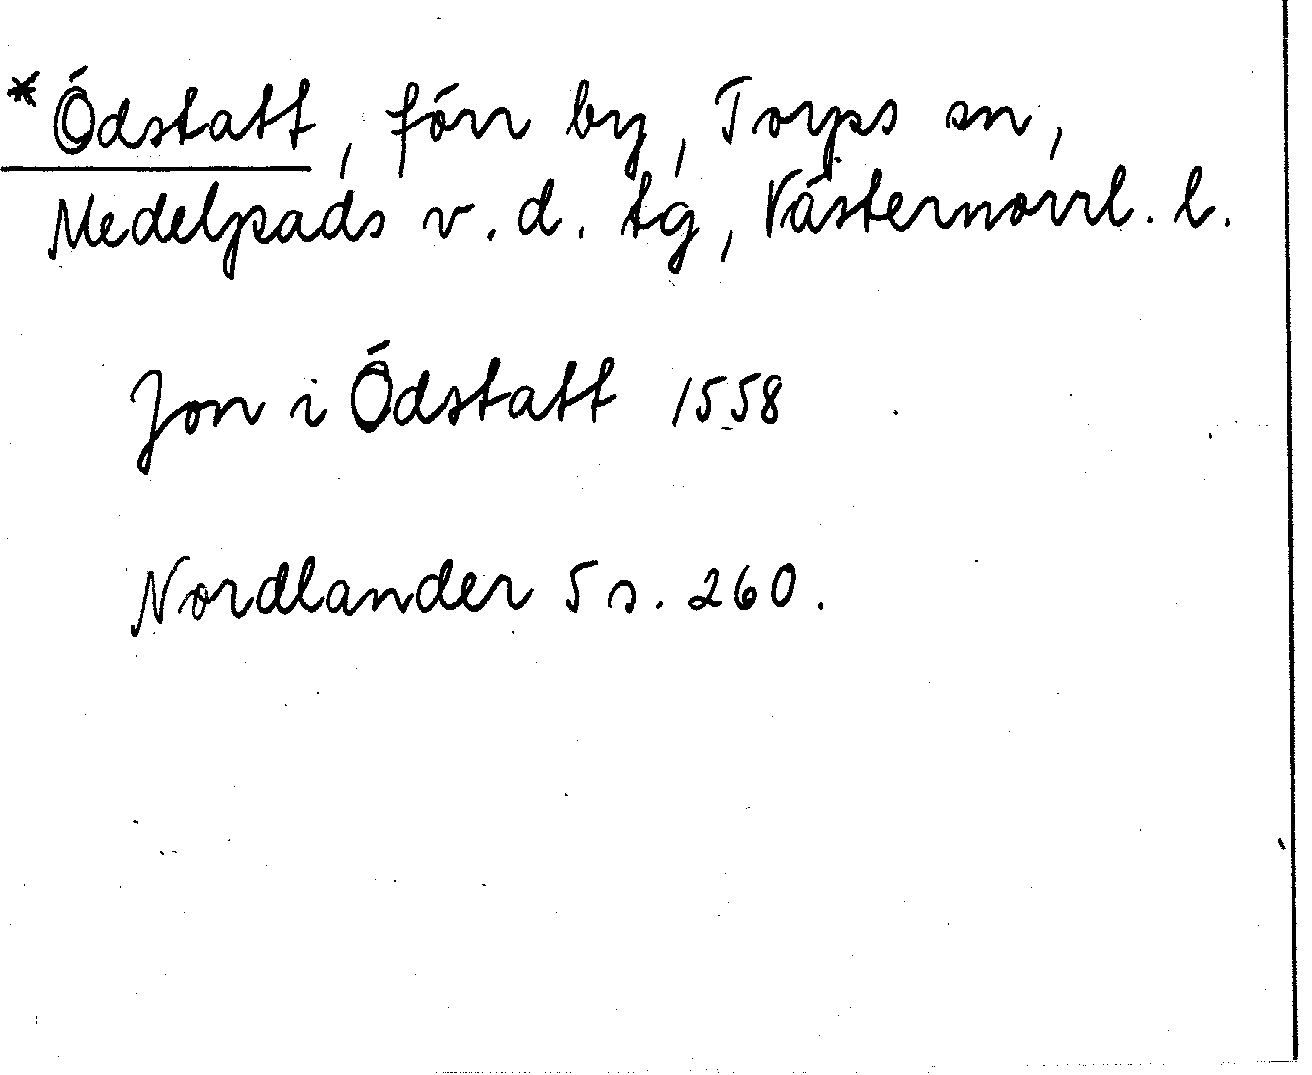 *Ödstatt, förr by, Torps sn,
Medelpads v. d. tg, Västernorrl. l.
Jon i Ödstatt 1558
Nordlander 5 s. 260.